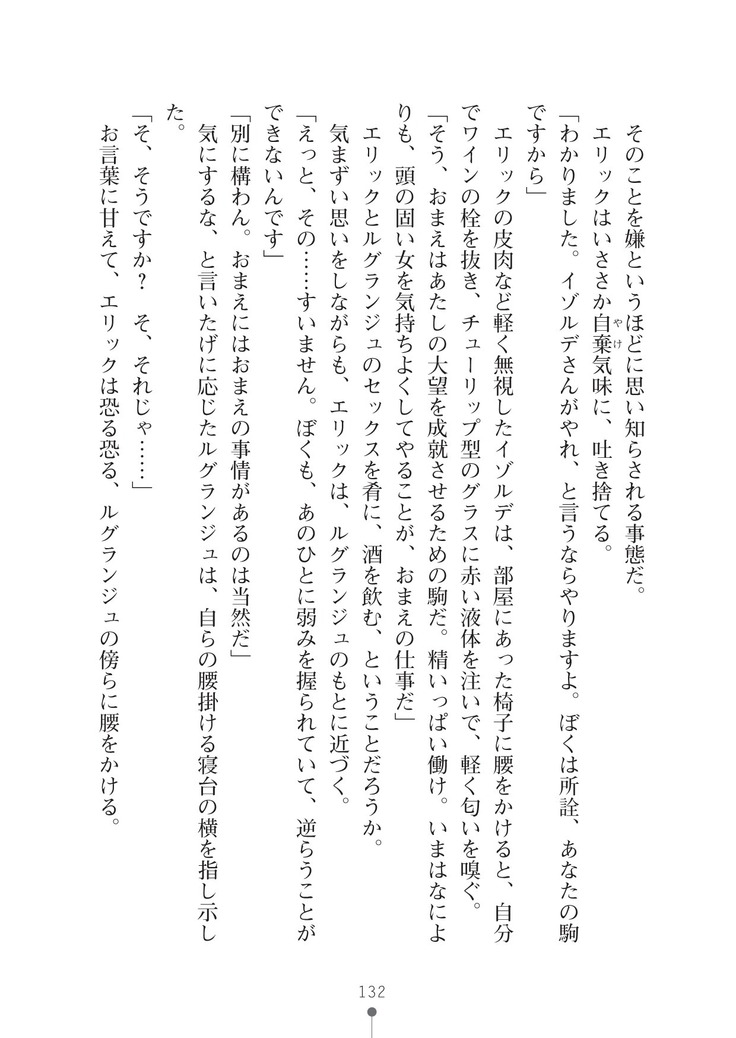 そのことを嫌というほどに思い知らされる事態だ。
エリックはいささか自棄気味に、吐き捨てる。
やけ
「わかりました。イゾルデさんがやれ、と言うならやりますよ。ぼくは所詮、あなたの駒
ですから」
エリックの皮肉など軽く無視したイゾルデは、部屋にあった椅子に腰をかけると、自分
でワインの栓を抜き、チューリップ型のグラスに赤い液体を注いで、軽く匂いを嗅ぐ。
「そう、おまえはあたしの大望を成就させるための駒だ。精いっぱい働け。いまはなによ
りも、頭の固い女を気持ちよくしてやることが、おまえの仕事だ」
エリックとルグランジュのセックスを肴に、酒を飲む、ということだろうか。
気まずい思いをしながらも、エリックは、ルグランジュのもとに近づく。
「えっと、その……すいません。ぼくも、あのひとに弱みを握られていて、逆らうことが
できないんです」
「別に構わん。おまえにはおまえの事情があるのは当然だ」
気にするな、と言いたげに応じたルグランジュは、自らの腰掛ける寝台の横を指し示し
た。
「そ、そうですか？　そ、それじゃ……」
お言葉に甘えて、エリックは恐る恐る、ルグランジュの傍らに腰をかける。
132